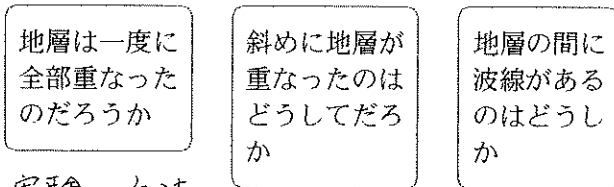 地層は一度に
全部重なった
のだろうか
斜めに地層が
重なったのは
どうしてだろ
か
地層の間に
波線がある
のはどうし
か